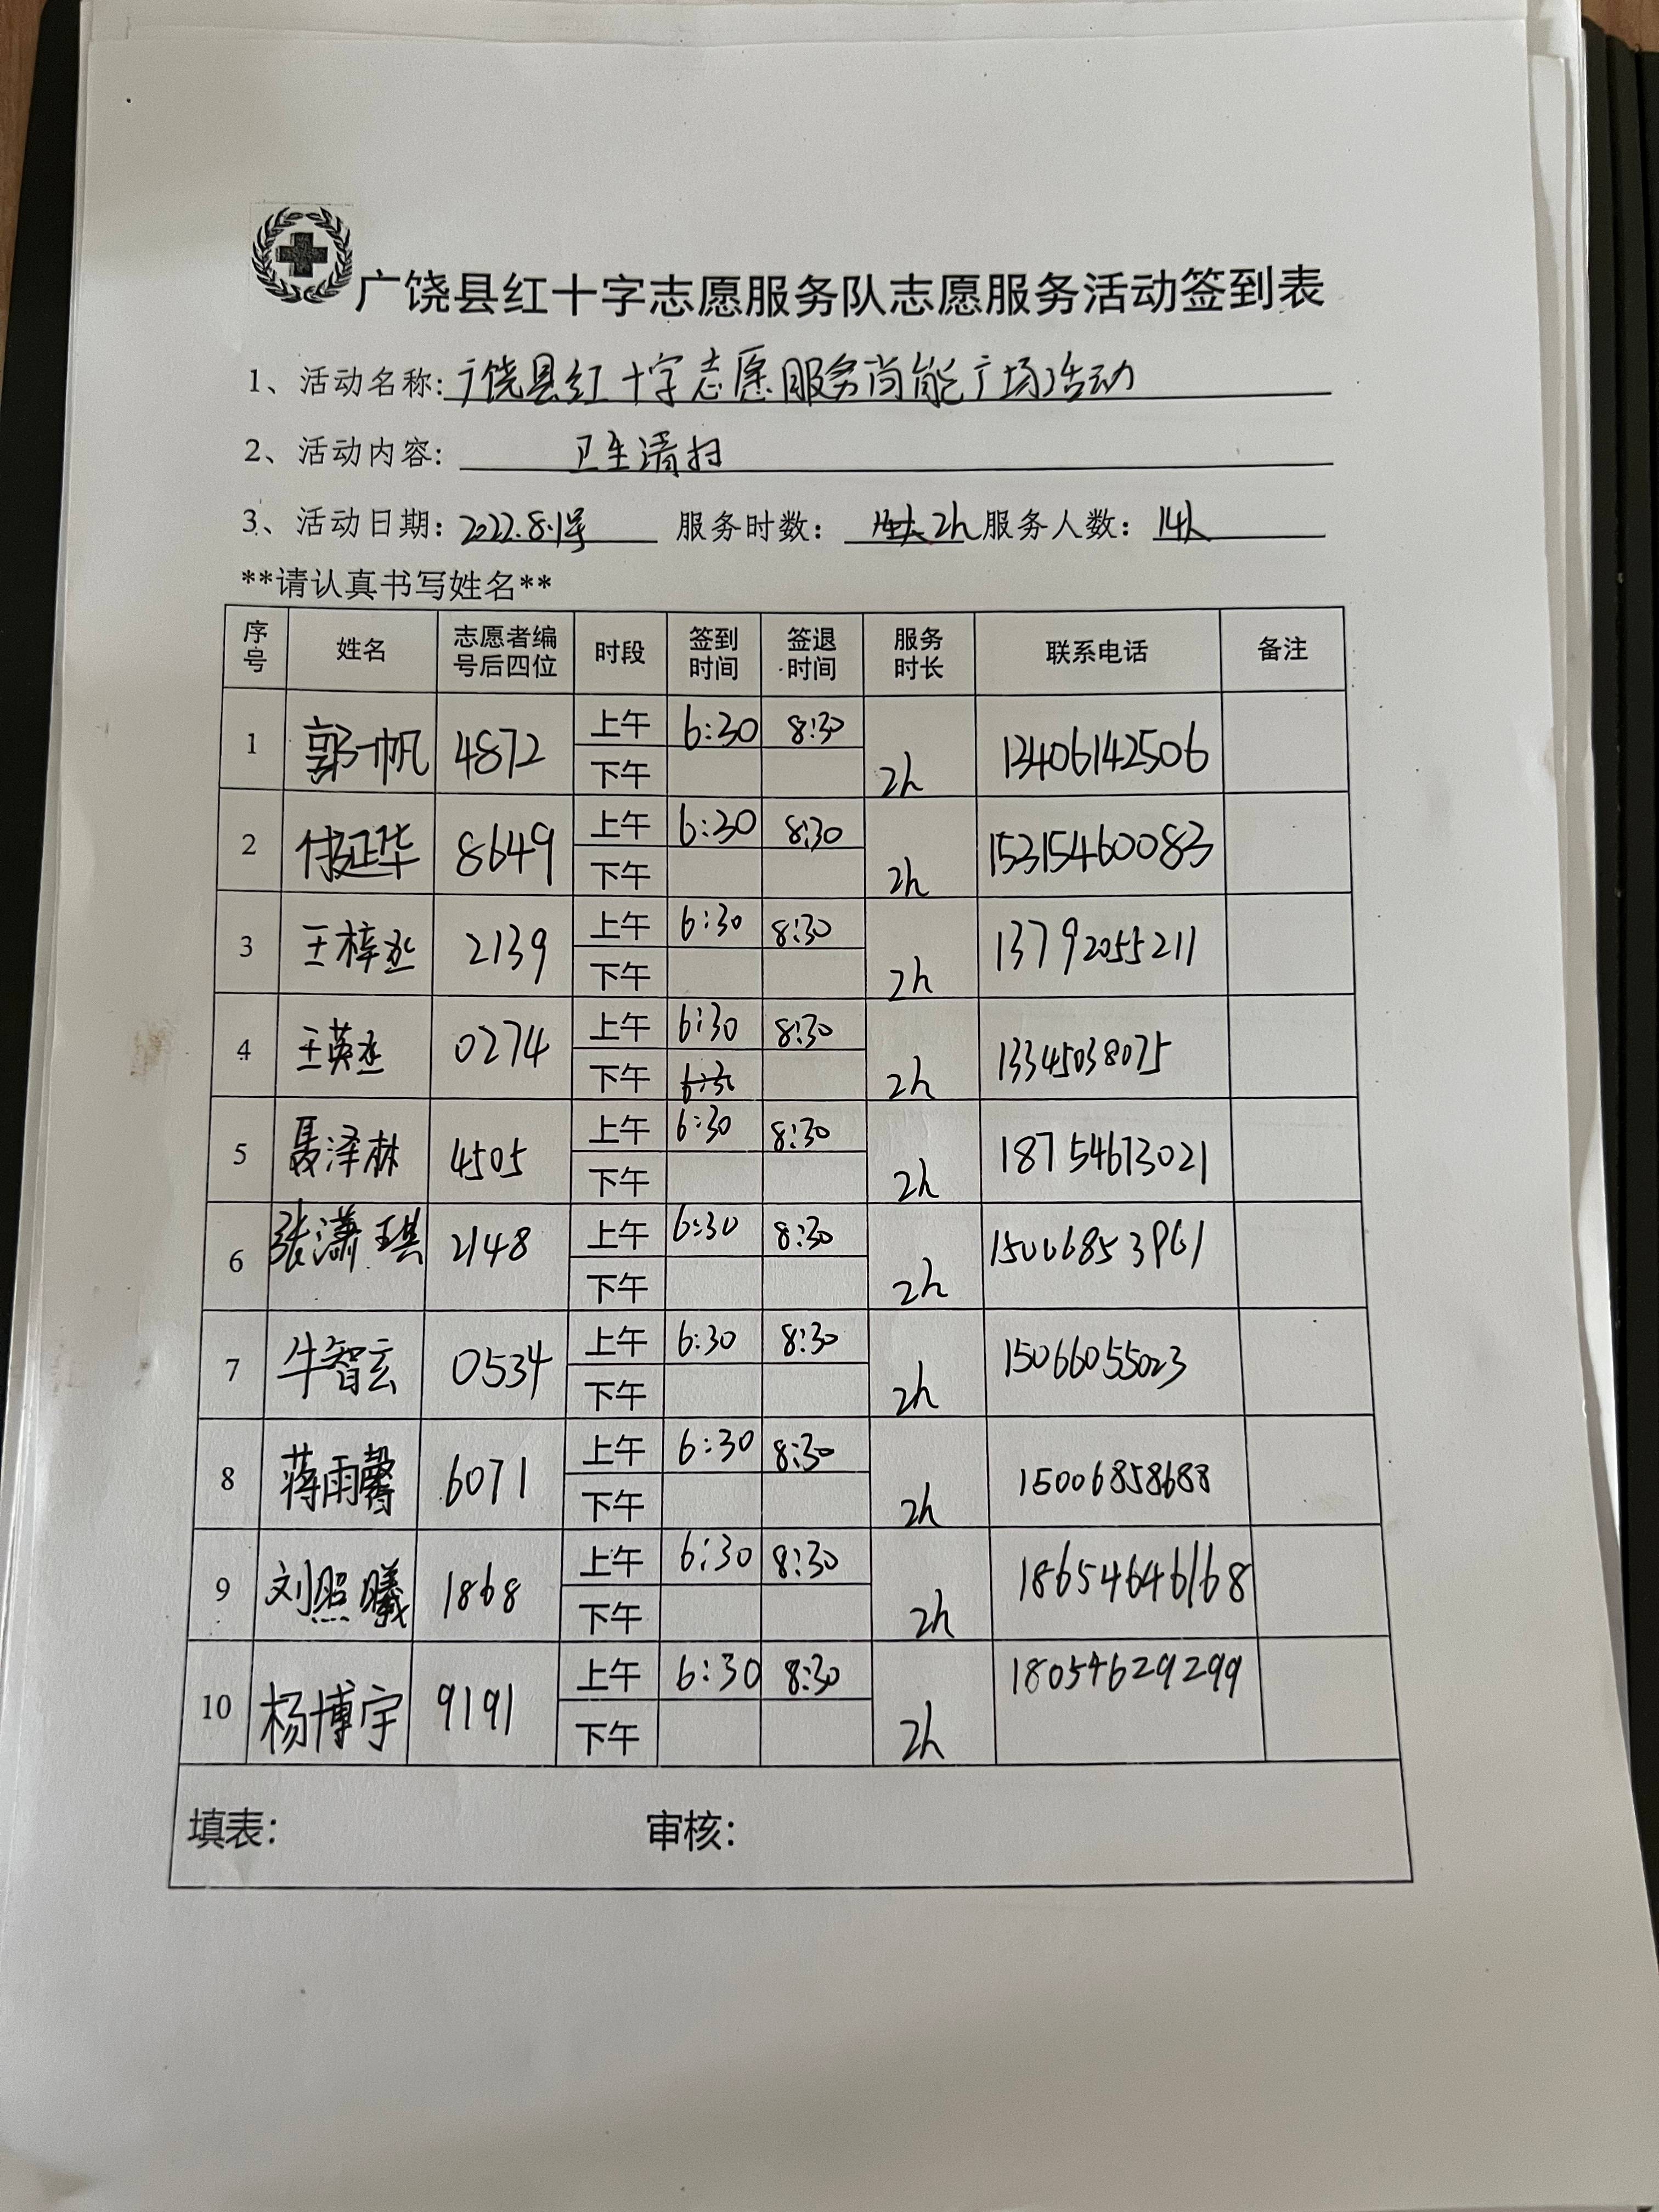 广饶县红十字志愿服务队志愿服务活动签到表
1、活动名称: 广饶县红十字志愿服务尚能广场活动
2、活动内容: 卫生清扫
3、活动日期: 2022.8.1号 服务时数: 2h 服务人数: 14人
**请认真书写姓名**
序号 姓名 志愿者编号后四位 时段 签到时间 签退时间 服务时长 联系电话 备注
1 郭一帆 4872 上午 6:30 8:30 2h 13406142506
下午
2 付延华 8649 上午 6:30 8:30 2h 15315460083
下午
3 王梓丞 2139 上午 6:30 8:30 2h 13792055211
下午
4 王英丞 0274 上午 6:30 8:30 2h 13345038075
下午 6:30
5 聂泽林 4505 上午 6:30 8:30 2h 18754673021
下午
6 张潇琪 2148 上午 6:30 8:30 2h
下午
7 牛智玄 0534 上午 6:30 8:30 2h 15066055023
下午
8 蒋雨馨 6071 上午 6:30 8:30 2h 15006858688
下午
9 刘照曦 1868 上午 6:30 8:30 2h 18654646168
下午
10 杨博宇 9191 上午 6:30 8:30 2h 18054629299
下午
填表: 审核: